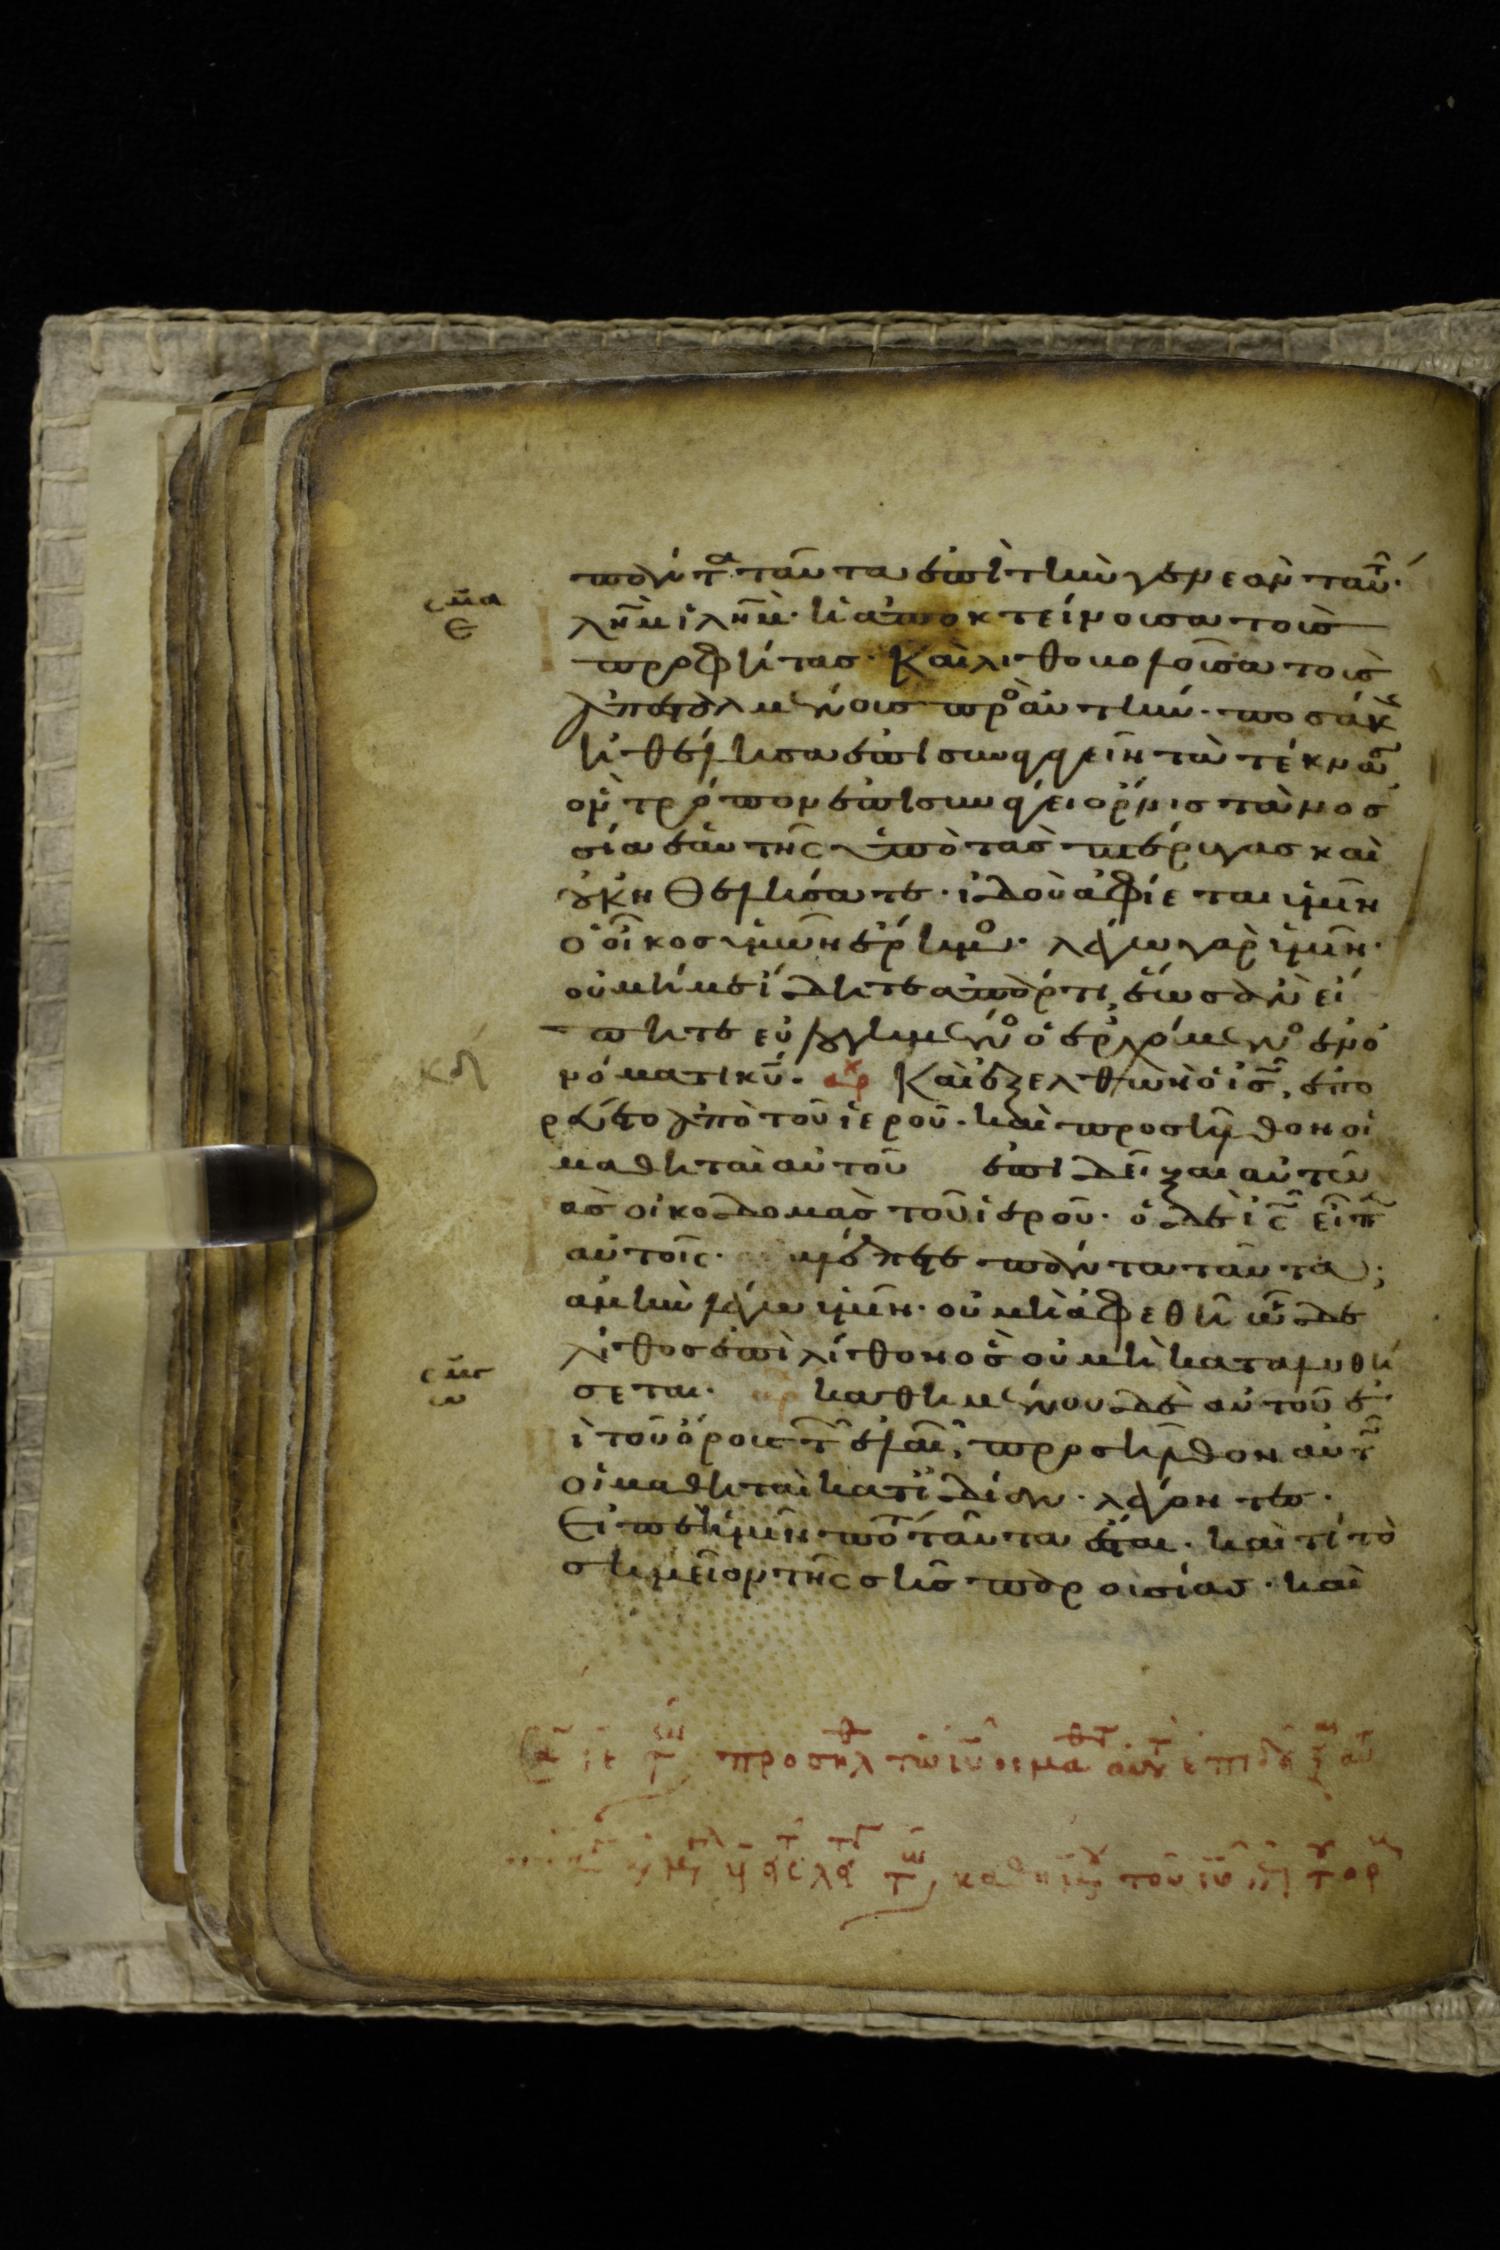 πάντα ταῦτα ἐπὶ τὴν γενεὰν ταύτ
σμα
ε
λημ ιλημ· ἡ ἀποκτείνουσα τοὺς
προφήτας· καὶ λιθοβολοῦσα τοὺς
ἀπεσταλμένους πρὸ αὐτήν· ποσάκ
ἠθέλησα ἐπισυναγαγεῖν τὰ τέκνα
ὃν τρόπον ἐπισυνάγει ὄρνις τὰ νοσ
σία ἑαυτῆς ὑπὸ τὰς πτέρυγας καὶ
οὐκ ἠθελήσατε· ἰδοὺ ἀφίεται ὑμῖν
ὁ οἶκος ὑμῶν ἔρημο· λέγω γὰρ ὑμῖν·
οὐ μή με ἴδητε ἀπάρτι, ἕως ἂν εἴ
πητε εὐλογημένο ὁ ἐρχόμενο ἐν ὀ
κδ
νόματι κυ· αρχ Καὶ ἐξελθὼν ὁ ις, ἐπο
ρεύετο ἀπὸ τοῦ ἱεροῦ· καὶ προσῆλθον οἱ
μαθηταὶ αὐτοῦ ἐπιδεῖξαι αὐτῶ
ὰς οἰκοδομὰς τοῦ ἱεροῦ· ὁ δὲ ις εἶπ
αὐτοῖς· βλέπετε πάντα ταῦτα;
ἀμὴν λέγω ὑμῖν· οὐ μὴ ἀφεθῆ ὧδε
λίθος ἐπὶ λίθον ὃς οὐ μὴ καταλυθή
σμς
ω
σεται· αρ καθημένου δὲ αὐτοῦ ἐ
ὶ τοῦ ὄρους τ ἐλαι, προσῆλθον αὐτ
οἱ μαθηταὶ κατ ἰδίαν· λέγοντες·
Εἰπὲ ἡμῖν πό ταῦτα ἔσται· καὶ τί τὸ
σημεῖον τῆς σῆς παρουσίας· καὶ
προσηλθ τῶ ιυ οι μαθτ αὐτ ἐπιδεῖξ αὐ
καθημ τοῦ ιυ ἐπὶ τ ορ